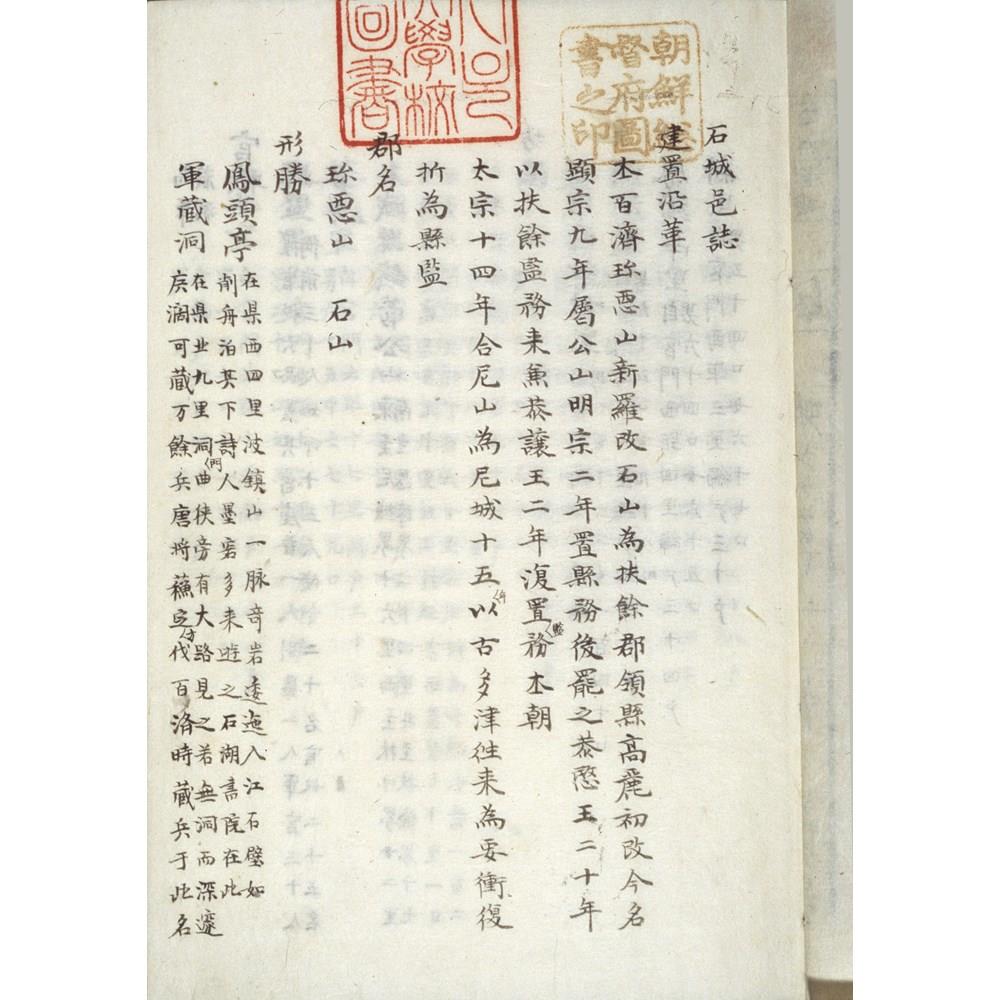 石城邑誌
建置沿革
本百濟珎惡山新羅改石山為扶餘郡領縣高麗初改今名
顯宗九年屬公山明宗二年置縣務後罷之恭愍王二十年
以扶餘監務来兼恭讓王二年復置監務本朝
太宗十四年合尼山為尼城十五年以古多津徃来為要衝復
折為縣監
郡名
珎惡山 石山
形勝
鳳頭亭 在県西四里波鎮山一脉竒岩逶迤入江石壁如
削舟泊其下詩人墨客多来遊之石湖書院在此
軍藏洞 在県北九里洞門曲俠旁有大路見之若無洞而深邃
庡濶可藏万餘兵唐將蘇定方伐百済時藏兵于此名
朝鮮総
督府圖
書之印
學校
圖書